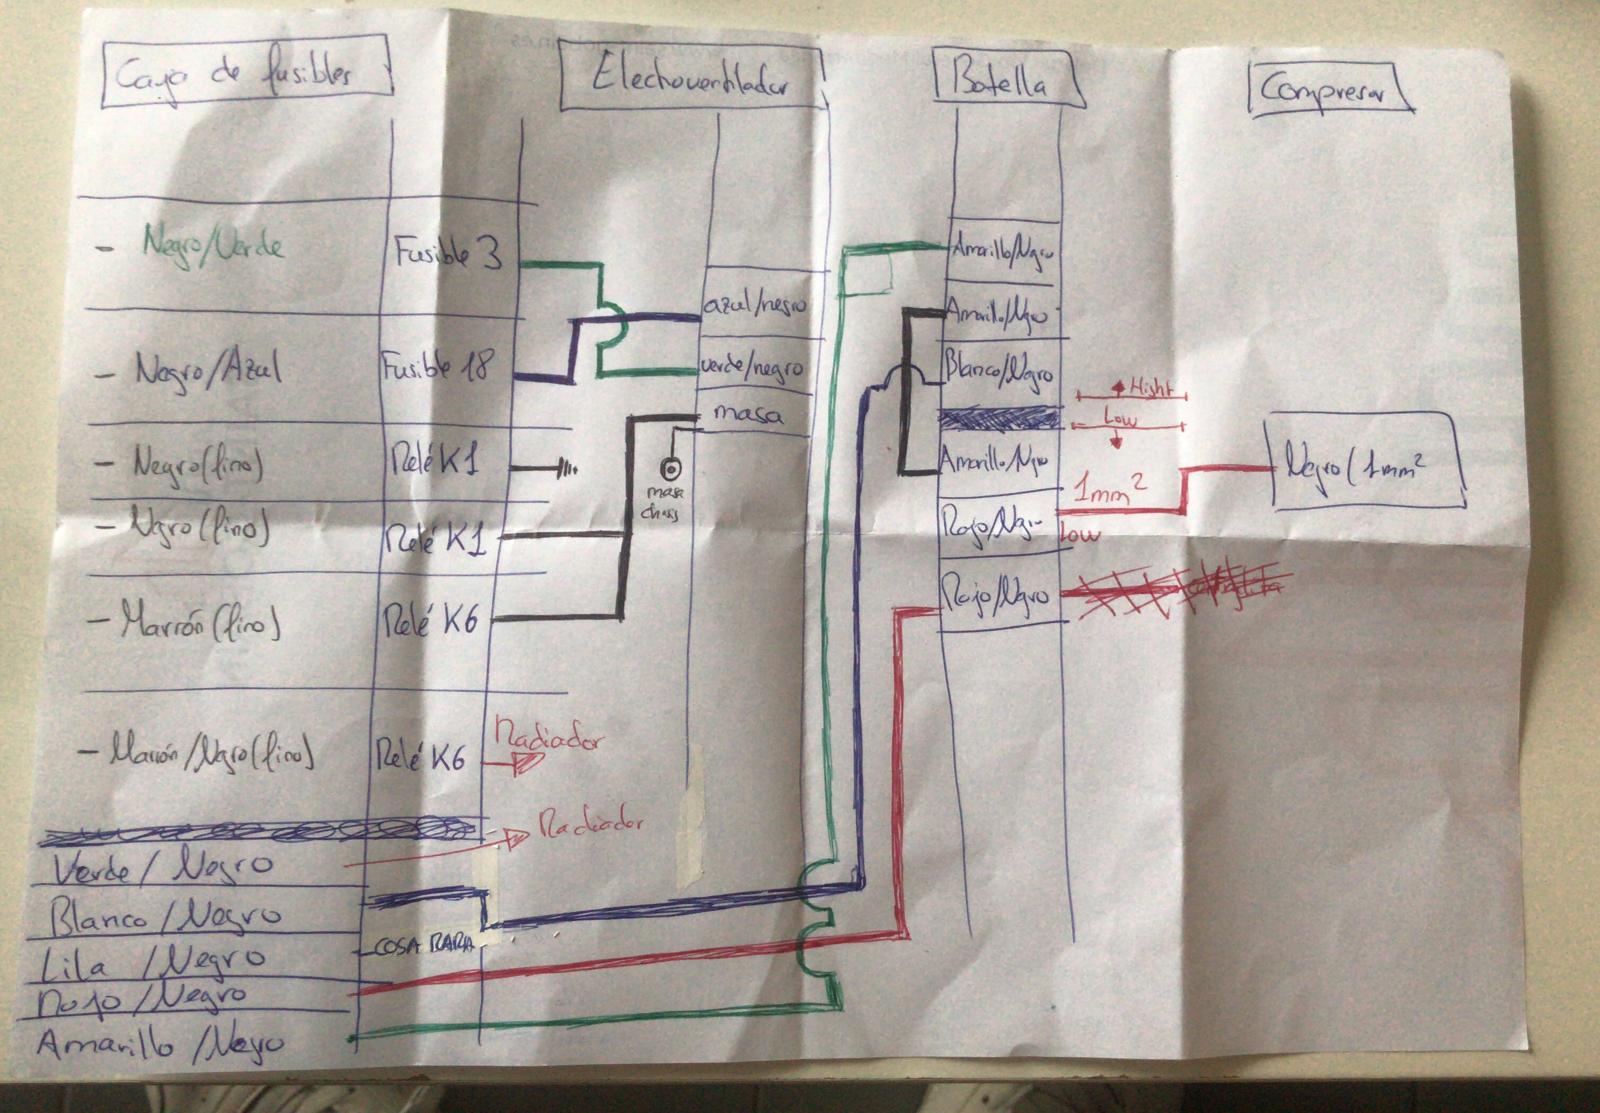 Caja de fusibles
Electroventilador
Botella
Compresor
- Negro/Verde
Fusible 3
- Negro/Azul
Fusible 18
- Negro(fino)
Relé K1
- Ngro(fino)
Relé K1
- Marrón(fino)
Relé K6
- Marrón/Ngro(fino)
Relé K6
Radiador
Radiador
Verde/Negro
Blanco/Negro
Lila/Negro
COSA RARA
Rojo/Negro
Amarillo/Negro
azul/negro
verde/negro
masa
masa
chass
Amarillo/Ngro
Amarillo/Ngro
Blanco/Ngro
Amarillo/Ngro
Rojo/Ngr
Rojo/Ngro
Hight
Low
1mm²
Low
Negro(1mm²